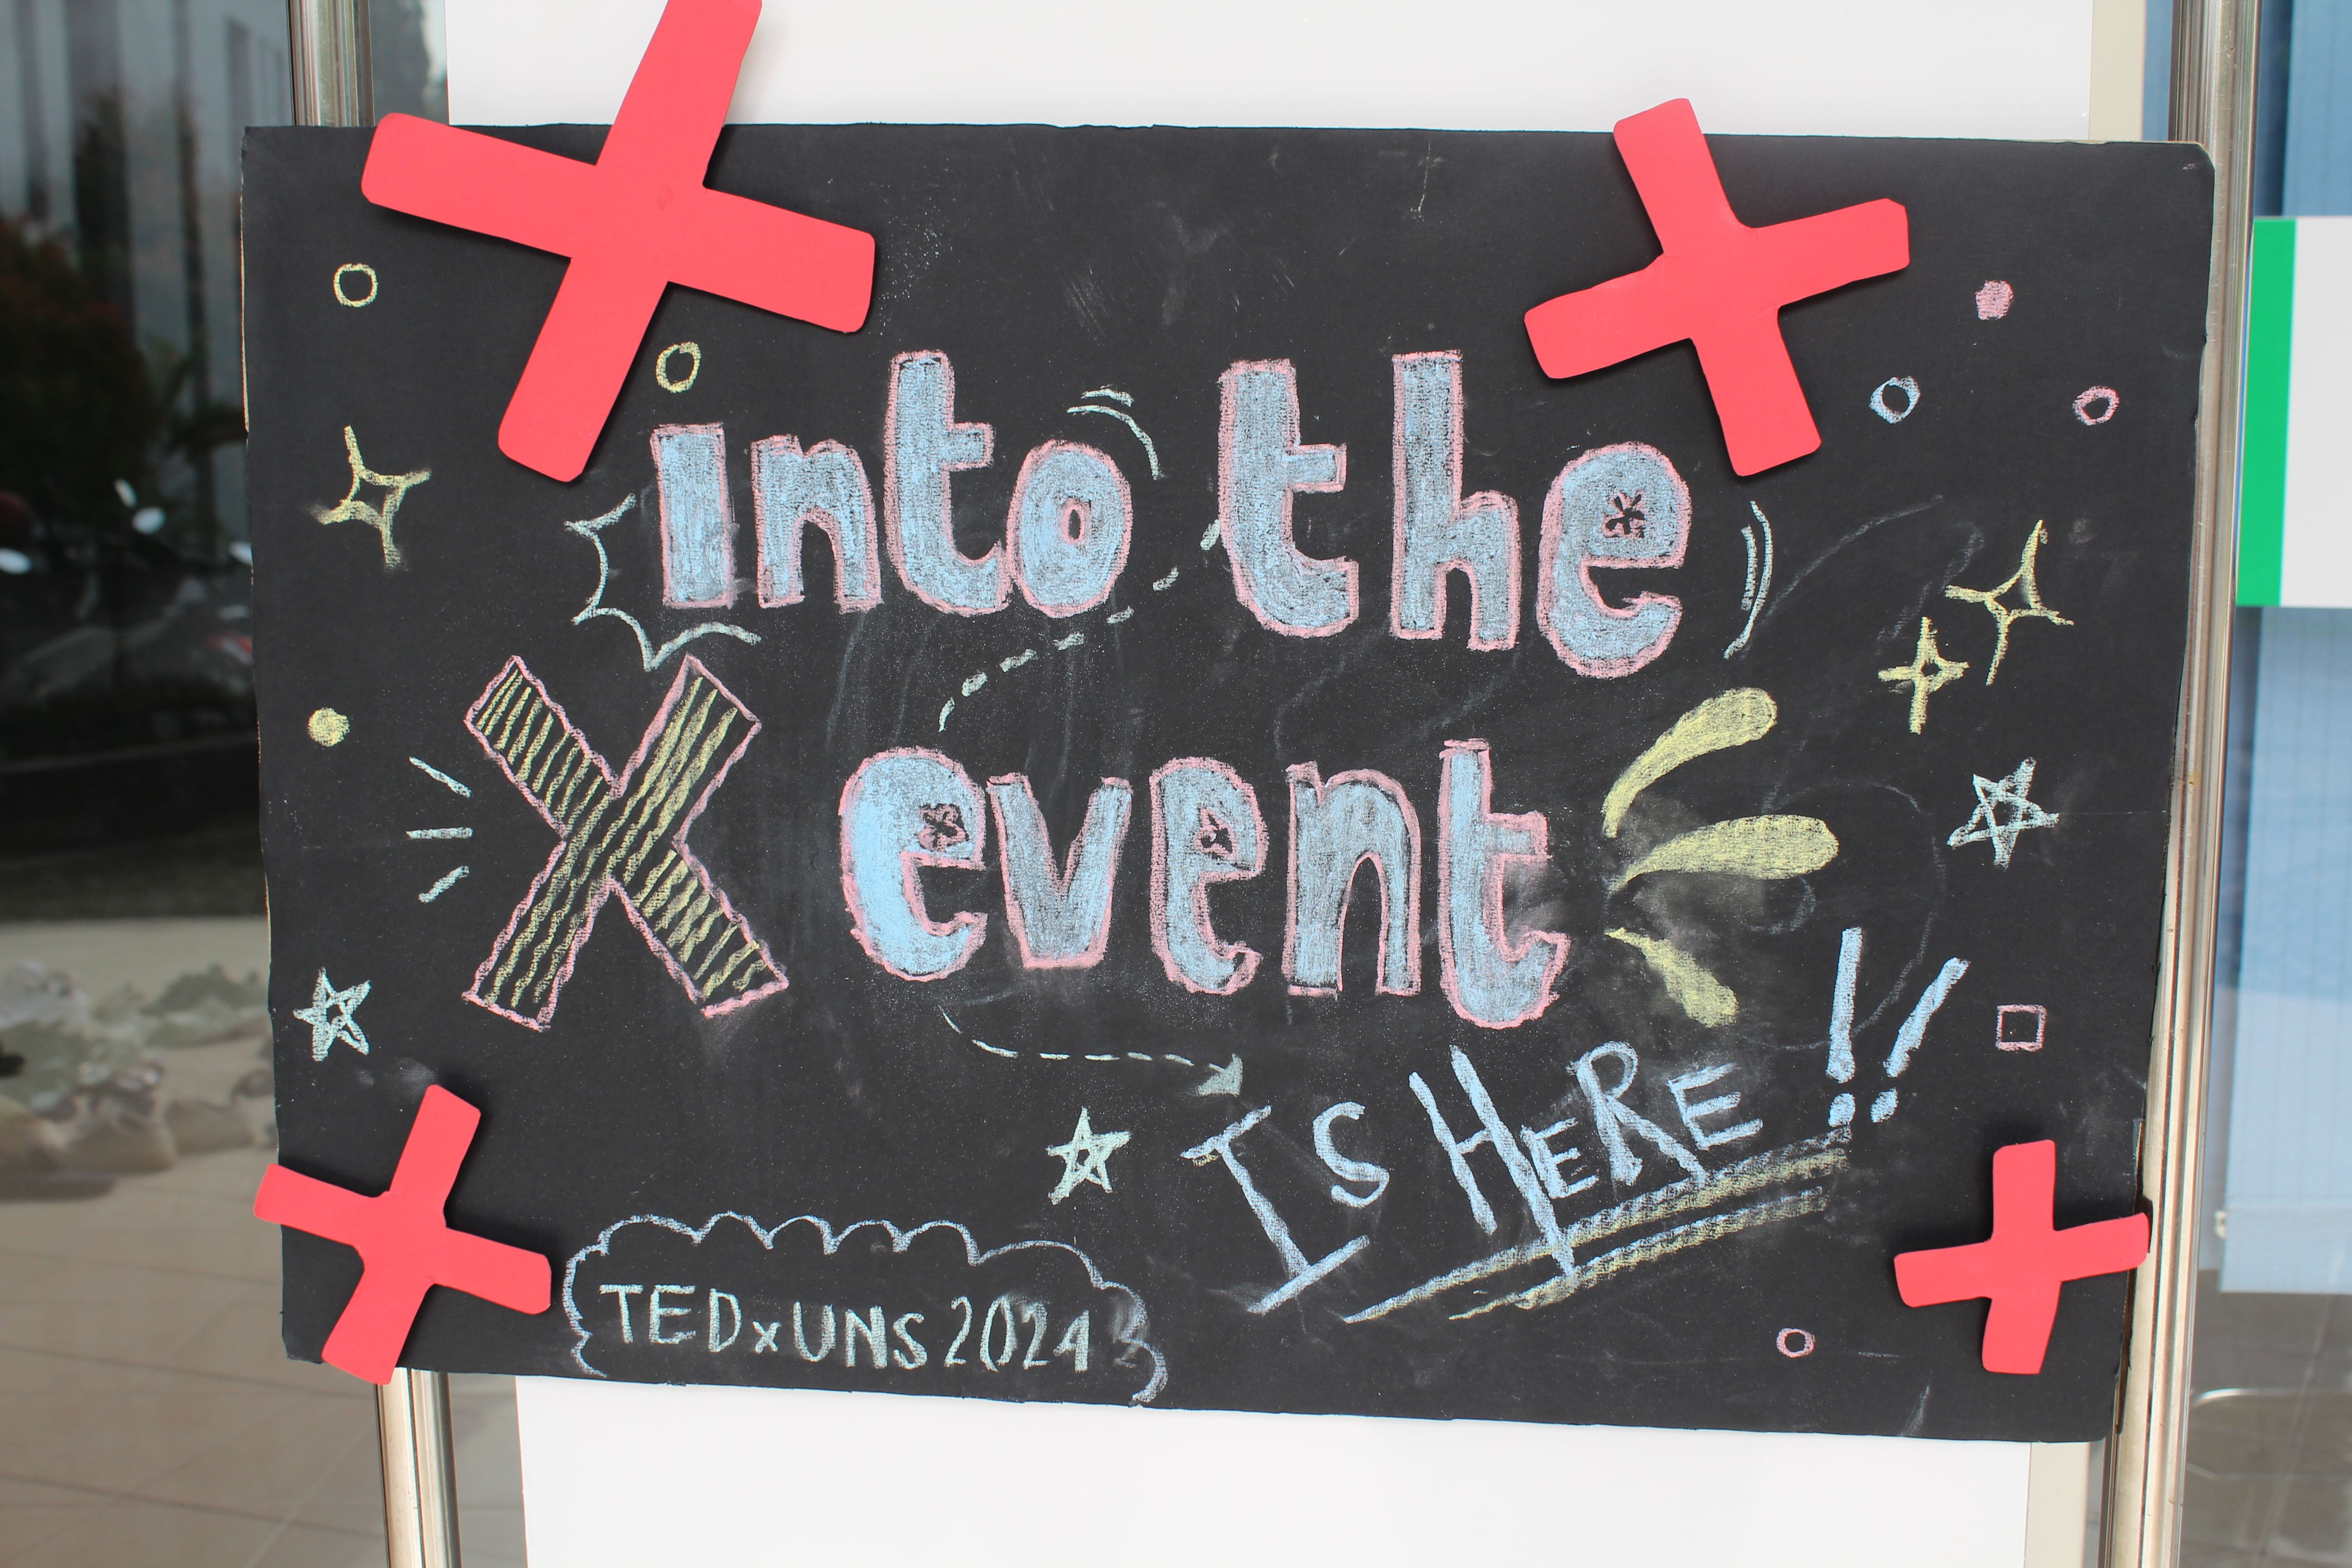 into the
X event
IS HERE !!
TEDxUNS 2024